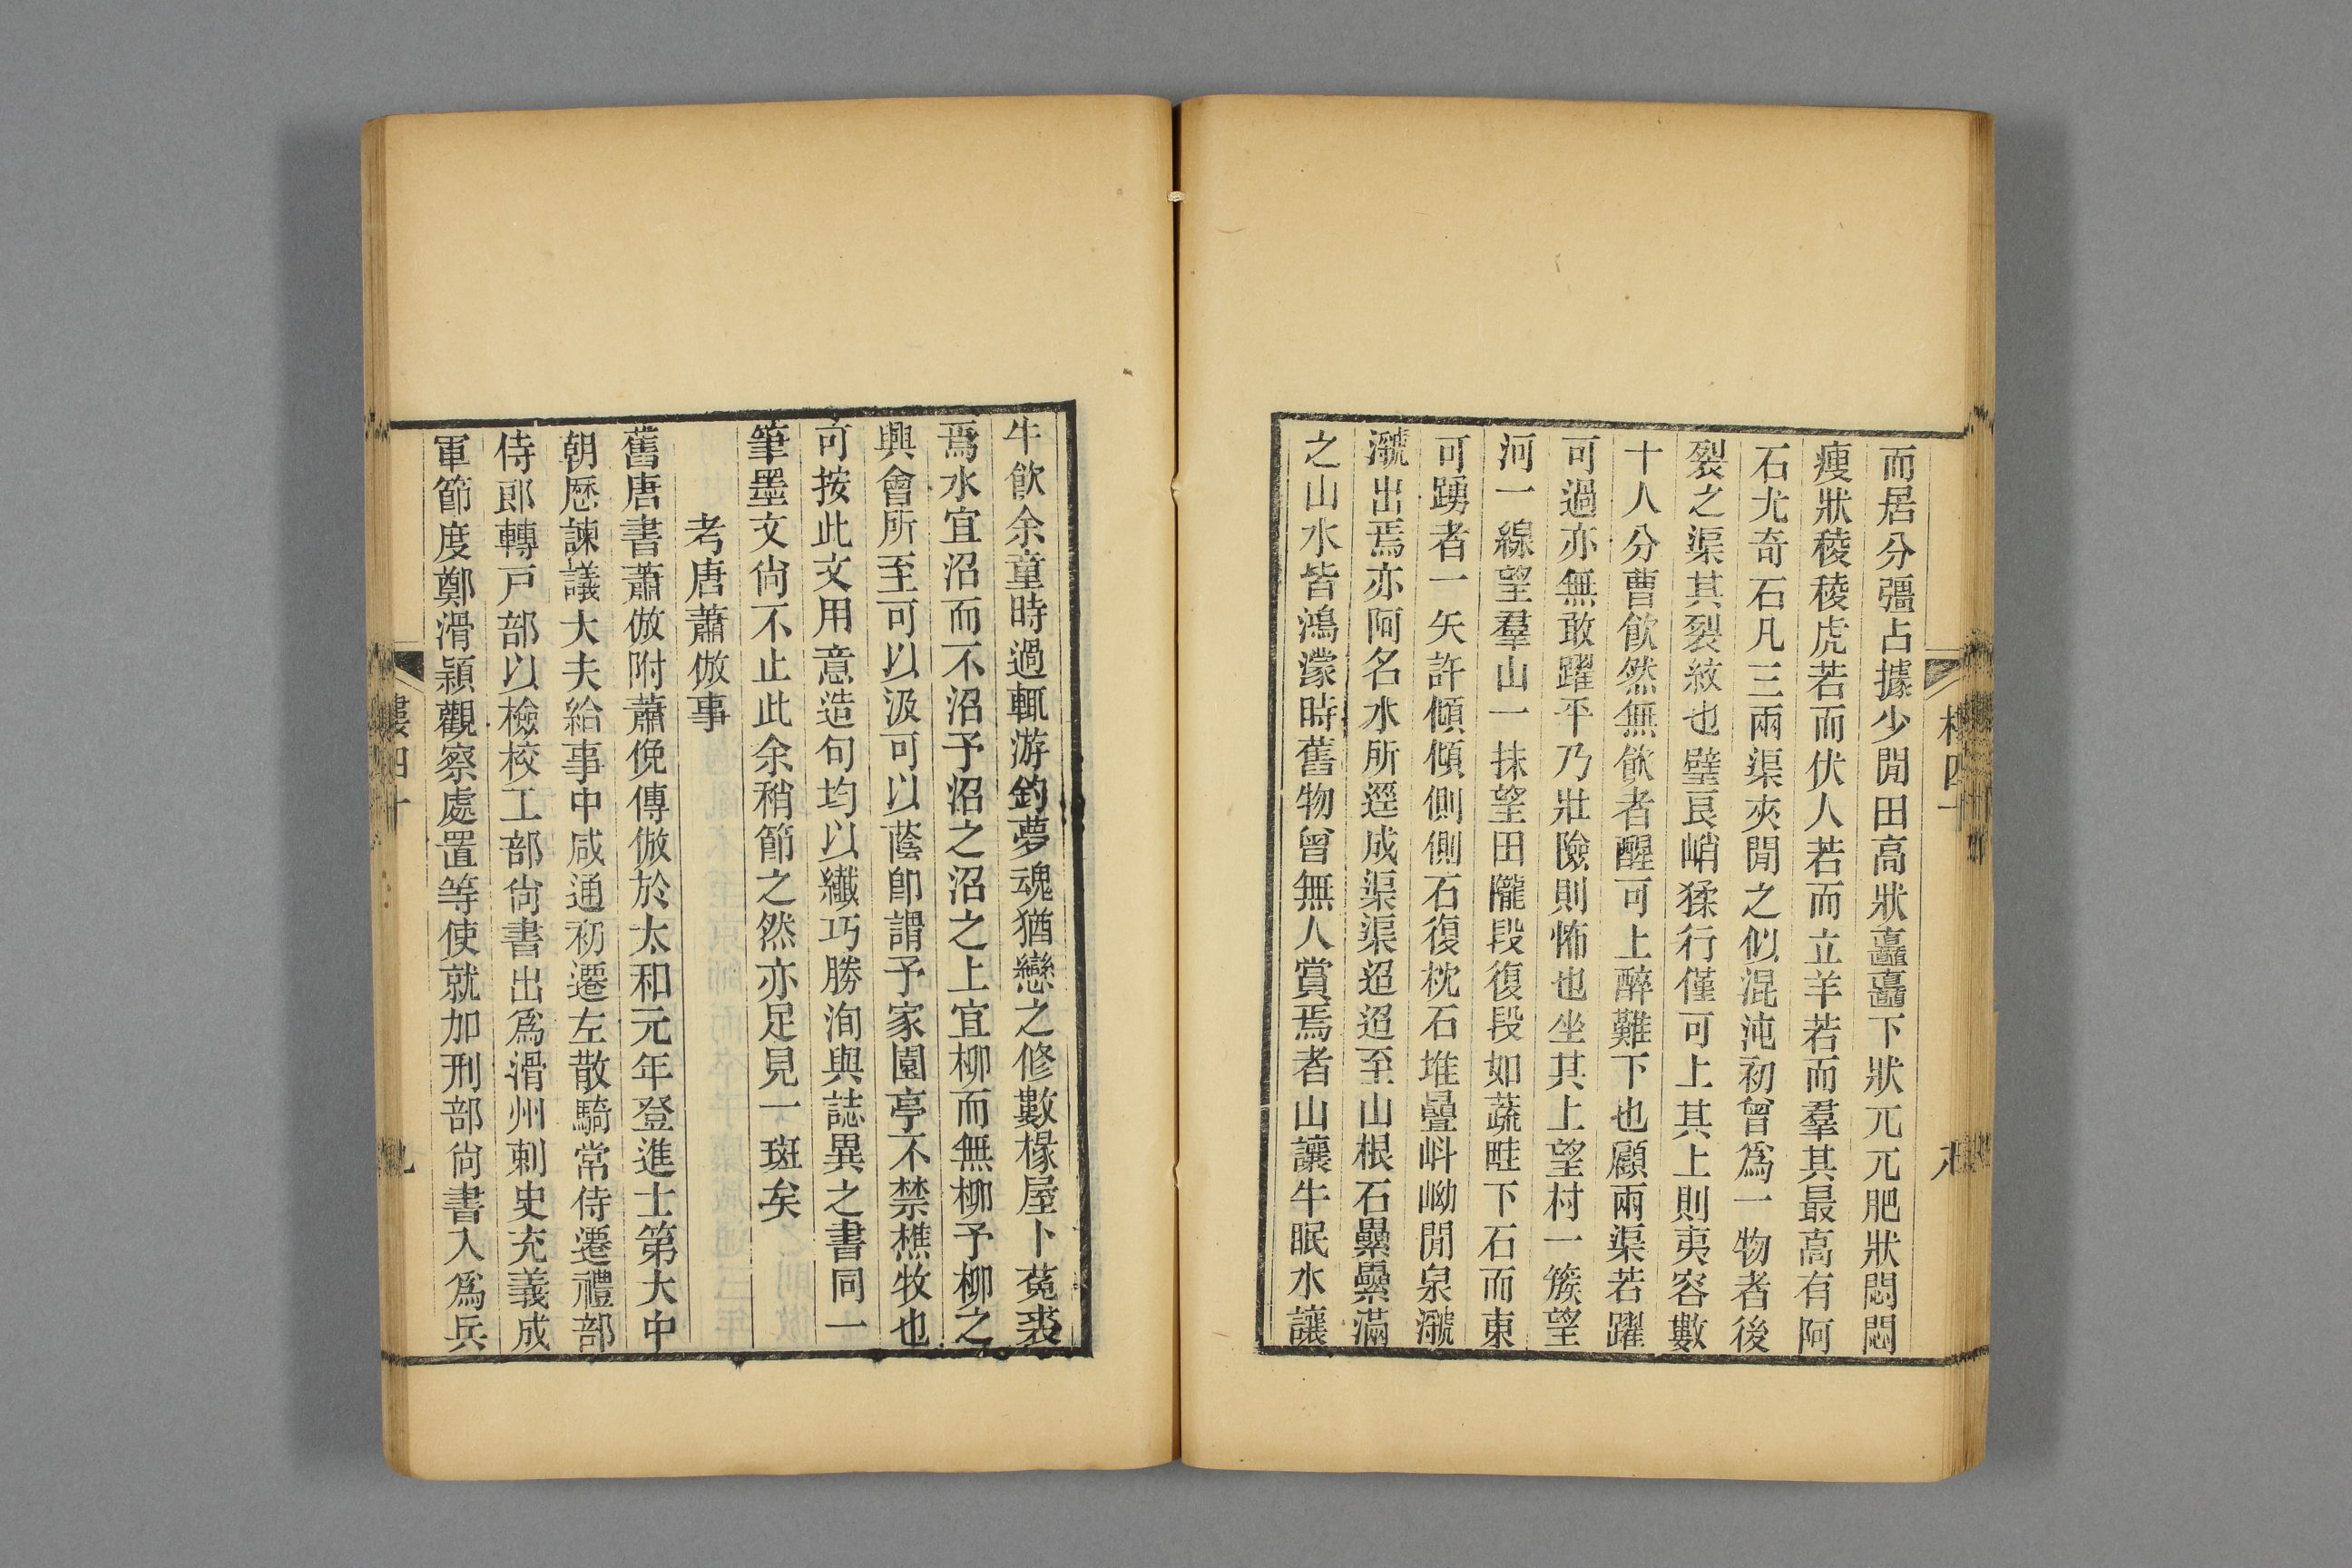 而居分彊占據少閒田高狀矗矗下狀兀兀肥狀悶悶
瘦狀稜稜虎若而伏人若而立羊若而羣其最高有阿
石尤奇石凡三兩渠夾閒之似混沌初曾爲一物者後
裂之渠其裂紋也壁艮峭猱行僅可上其上則夷容數
十人分曹飮然無飮者醒可上醉難下也顧兩渠若躍
可過亦無敢躍平乃壯險則怖也坐其上望村一簇望
河一線望羣山一抹望田隴段復段如蔬畦下石而東
可踴者一矢許傾傾側側石復枕石堆疊㞳岰閒泉㶁
㶁出焉亦阿名水所逕成渠渠迢迢至山根石纍纍滿
之山水皆鴻濛時舊物曾無人賞焉者山讓牛眠水讓
牛飮余童時過輒游釣夢魂猶戀之修數椽屋卜菟裘
焉水宜沼而不沼予沼之沼之上宜柳而無柳予柳之
興會所至可以汲可以蔭卽謂予家園亭不禁樵牧也
可按此文用意造句均以纖巧勝洵與誌異之書同一
筆墨文尙不止此余稍節之然亦足見一斑矣
考唐蕭倣事
舊唐書蕭倣附蕭俛傳倣於太和元年登進士第大中
朝歷諫議大夫給事中咸通初遷左散騎常侍遷禮部
侍郎轉戸部以檢校工部尙書出爲滑州刺史充義成
軍節度鄭滑潁觀察處置等使就加刑部尙書入爲兵